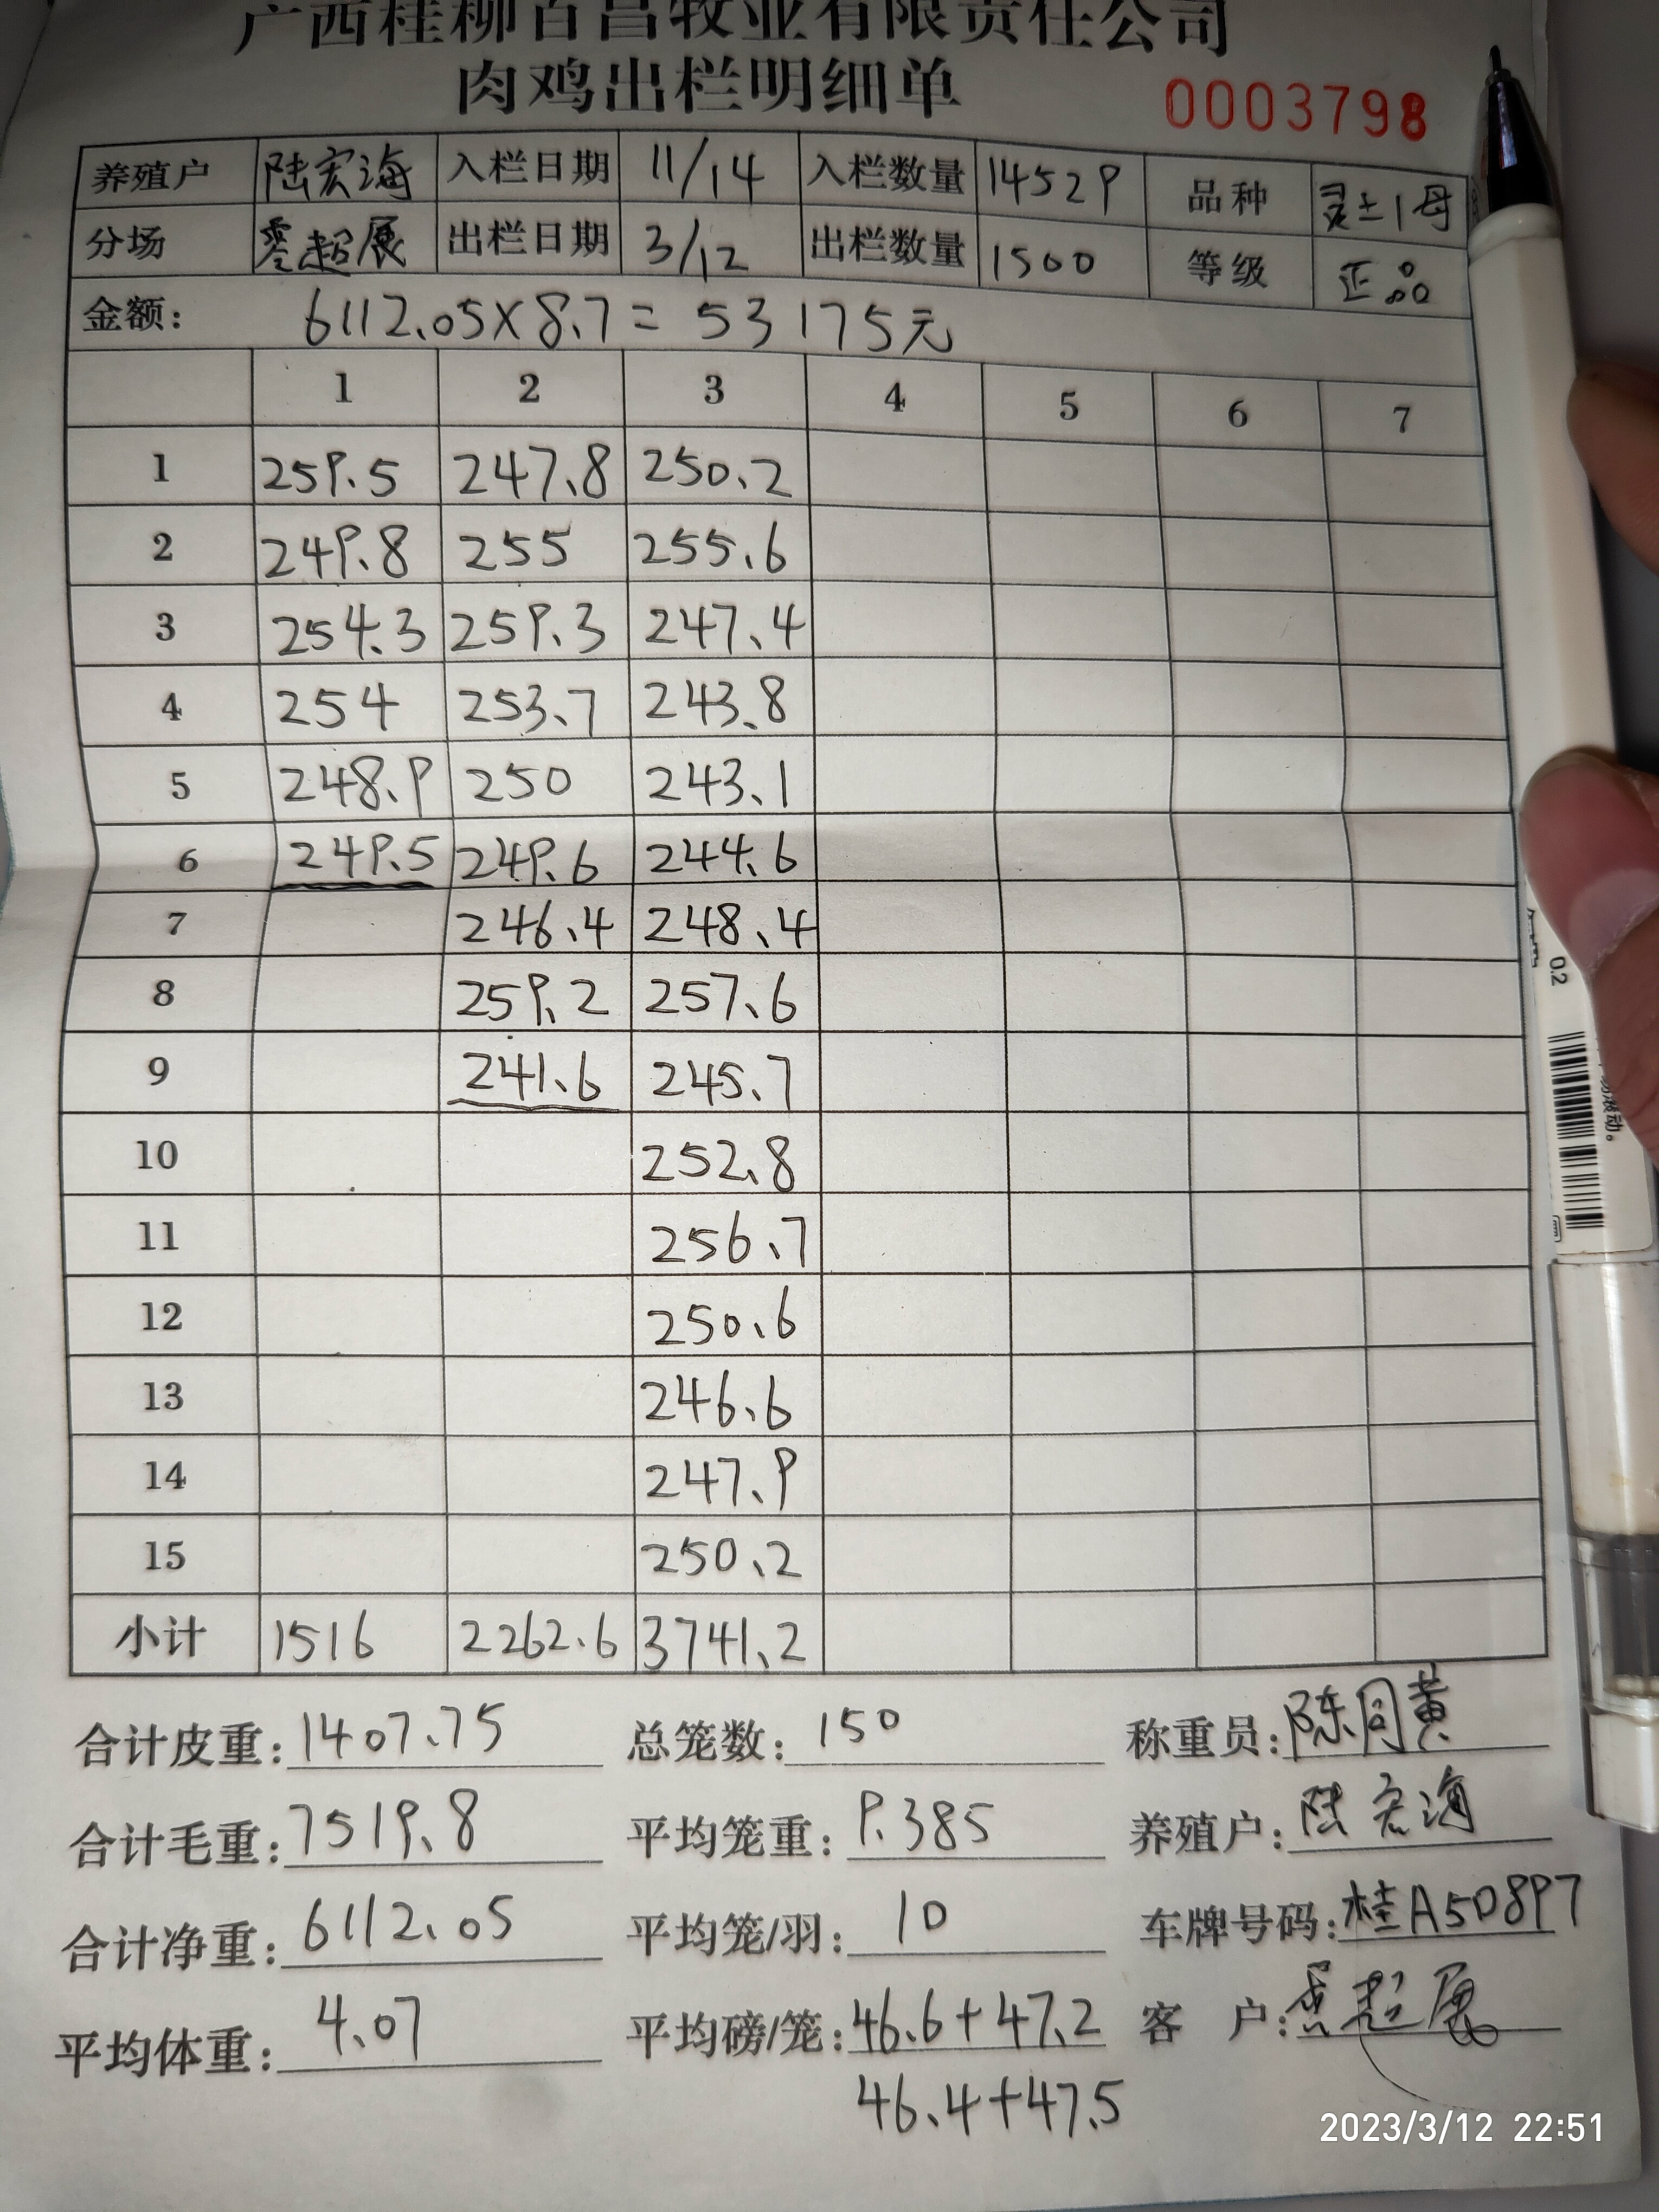 广西桂柳百昌牧业有限责任公司
肉鸡出栏明细单
0003798
养殖户 陆宏海 入栏日期 11/14 入栏数量 14529 品种 灵土1母
分场 超展 出栏日期 3/12 出栏数量 1500 等级 正品
金额: 6112.05×8.7=53175元
1 2 3 4 5 6 7
1 259.5 247.8 250.2
2 249.8 255 255.6
3 254.3 259.3 247.4
4 254 253.7 243.8
5 248.9 250 243.1
6 249.5 249.6 244.6
7 246.4 248.4
8 259.2 257.6
9 241.6 245.7
10 252.8
11 256.7
12 250.6
13 246.6
14 247.9
15 250.2
小计 1516 2262.6 3741.2
合计皮重: 1407.75 总笼数: 150 称重员: 陈同黄
合计毛重: 7519.8 平均笼重: 9.385 养殖户: 陆宏海
合计净重: 6112.05 平均笼/羽: 10 车牌号码: 桂A50897
平均体重: 4.07 平均磅/笼: 46.6+47.2 客户: 超展
46.4+47.5
0.2
2023/3/12 22:51